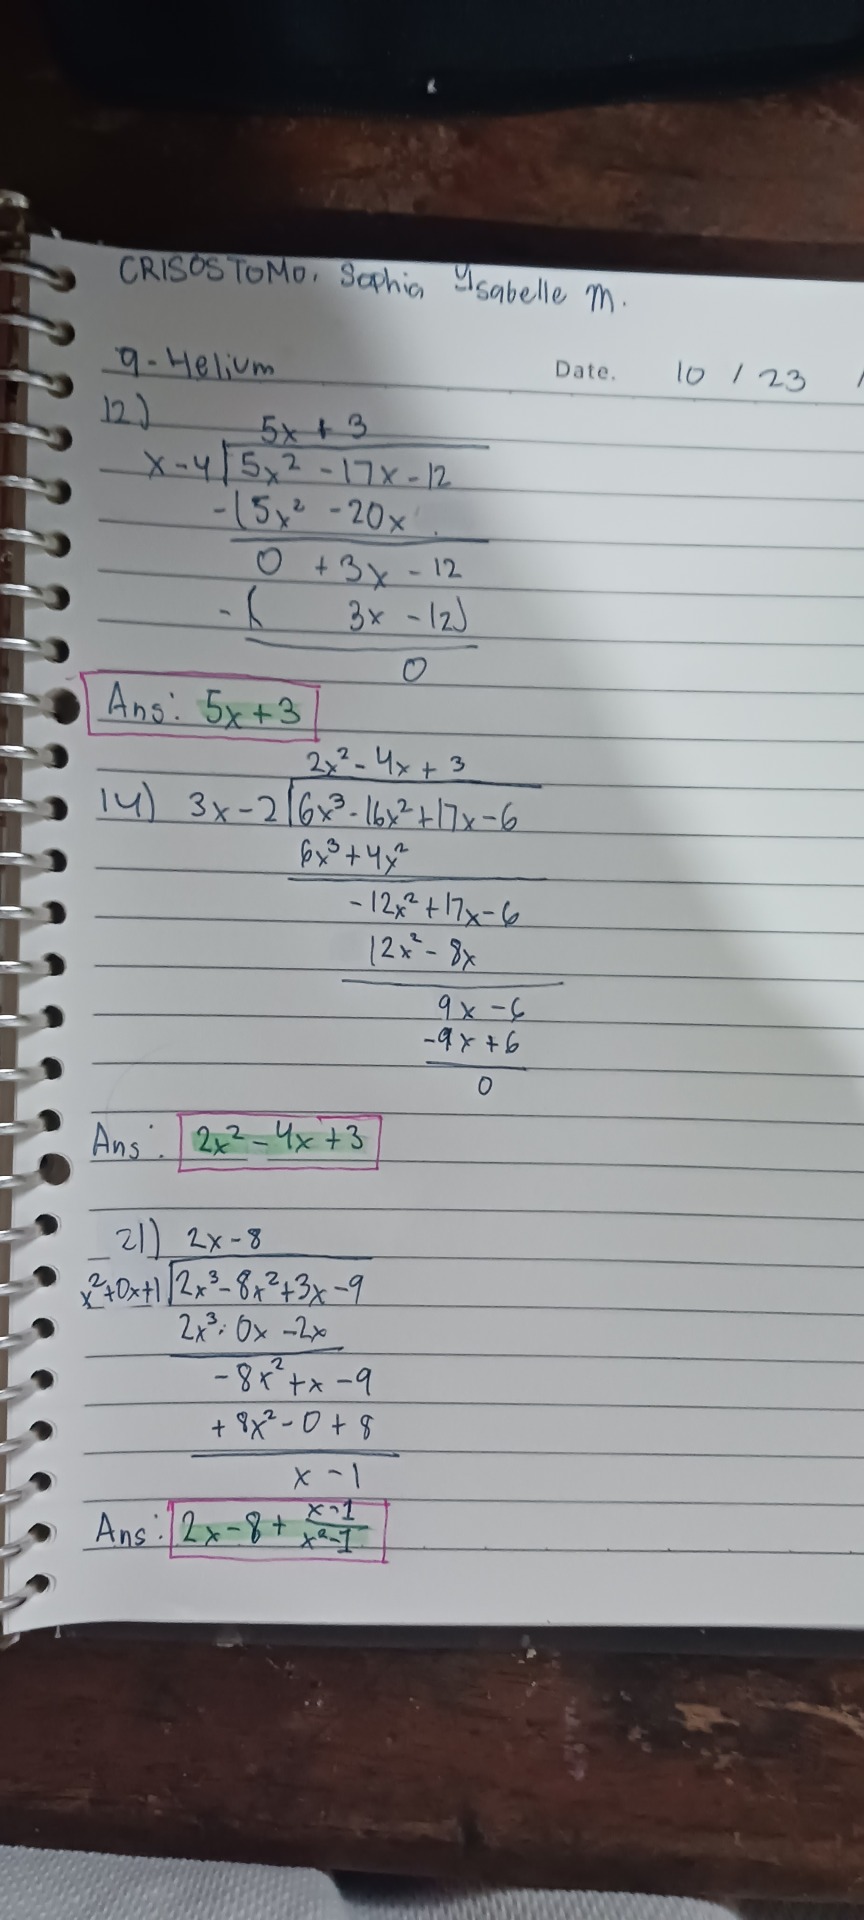 CRISOSTOMO, Sophia Ysabelle M.
9-Helium Date. 10 / 23 /
12)
5x + 3
x-4 5x² - 17x - 12
-(5x² - 20x
0 + 3x - 12
-( 3x - 12)
0
Ans: 5x+3
2x² - 4x + 3
14) 3x-2 6x³-16x²+17x-6
6x³+4x²
-12x²+17x-6
12x²- 8x
9x - 6
-9x + 6
0
Ans: 2x²-4x+3
21) 2x-8
x²+0x+1 2x³-8x²+3x-9
2x³: 0x -2x
-8x²+x-9
+8x²-0+8
x-1
Ans: 2x-8+ x-1
x²-1